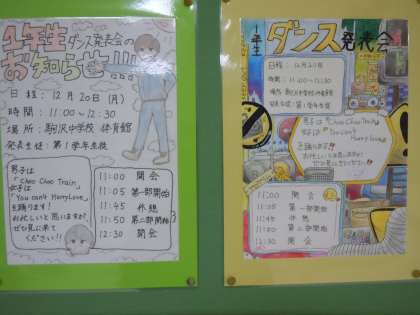 1年生ダンス発表会の
お知らせ!!!
日程：12月20日(月)
時間：11:00〜12:30
場所：駒沢中学校 体育館
発表生徒：第1学年生徒
男子は
「Choo Choo Train」
女子は
「You can't Hurry Love」
を踊ります！
お忙しいと思いますが、
ぜひ見に来て
ください!!
11:00 開会
11:05 第一部開始
11:45 休憩
11:50 第二部開始
12:30 閉会
1年生
ダンス発表会
日程：12月20日
時間：11:00〜12:30
場所：駒沢中学校体育館
発表生徒：第1学年生徒
男子は「Choo Choo Train」
女子は「You Can't
Hurry Love」
を踊ります!!
11:00 開会
11:05 第一部開始
11:45 休憩
11:50 第二部開始
12:30 閉会